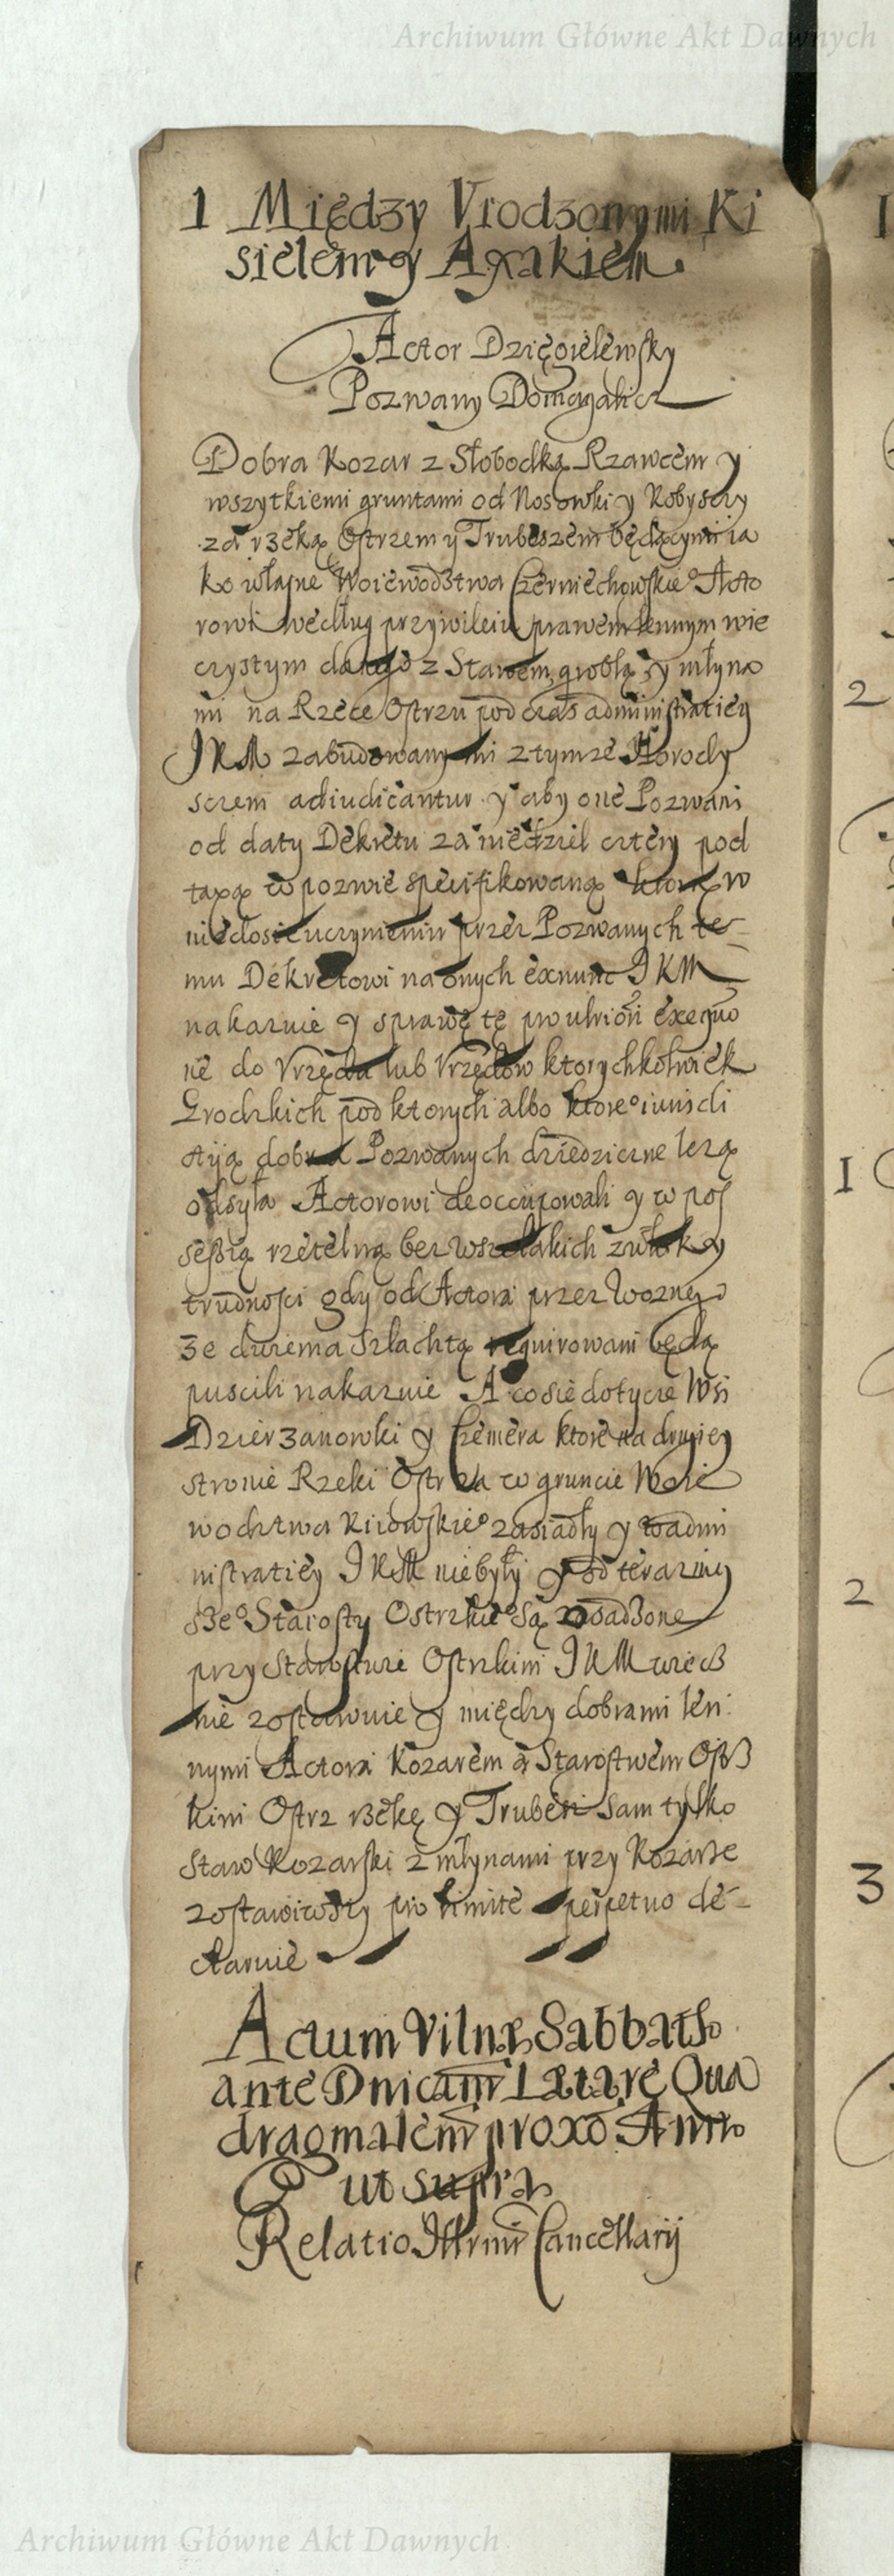 Archiwum Główne Akt Dawnych
1 Między Vrodzonymi Ki
sielem y Axakiem
Actor Dzięgielewsky
Pozwany Domagalicz
Dobra Kozar z Słobodką Rzawcem y
wszytkiemi gruntami od Nosowki y Kobysczy
za rzeką Ostrzem y Trubeszem będącymi ia
ko własne Woiewodztwa Czerniechowskie° Acto
rowi według przywileiu prawem lennym wie
czystym dane° z Stawem, groblą y młyna
mi na Rzece Ostrzu pod czas administratiey
JKM zabudowanymi z tymze Horody
sczem adiudicantur y aby one Pozwani
od daty Dekretu za niedziel cztery pod
taxą w pozwie specifikowaną ktorą w
niedosicuczynieniu przez Pozwanych te-
mu Dekretowi na onych exnunc JKM
nakazuie y sprawę tę pro ulriori exequo
ne do Vrzędu lub Vrzędow ktorychkolwiek
Grodzkich pod ktorych albo ktore° iurisdi
ctyą dobra Pozwanych dziedziczne lezą
odsyła Actorowi deoccupowali y w pos
sessią rzetelną bez wszelakich zwłok y
trudności gdy od Actora przez Wozne°
ze dwiema szlachtą requirowani będą
puscili nakazuie A co sie dotycze Wsi
Dzierzanowki y Czemera ktore na drugiey
stronie Rzeki Ostrza w gruncie Woie
wodztwa Kiiowskie° zasiadły y w admi
nistratiey JKM niebyły y od terazniey
sze° Starosty Ostrzkie° są zosadzone
przy Starostwie Ostrzkim JKM wiecz
nie zostawuie y między dobrami len:
nymi Actora Kozarem a Starostwem Ostrz
kim Ostrz rzekę y Trubesz sam tylko
Staw Kozarski z młynami przy Kozarze
zostawiwszy pro limite perpetuo de-
claruie
Actum Vilnæ Sabbatho
ante Dnicam Lætare Qua
dragmalem proxo Anno
ut supra
Relatio Illrmi Cancellarij
1
2
1
2
3
Archiwum Główne Akt Dawnych